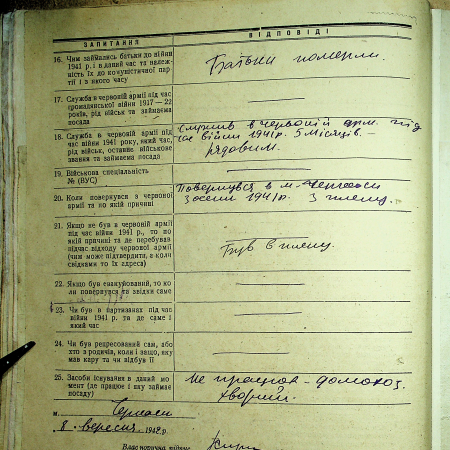 ЗАПИТАННЯ
ВІДПОВІДІ
16. Чим займались батьки до війни
1941 р. і в даний час та належ-
ність їх до комуністичної пар-
тії і з якого часу
Батьки померли.
17. Служба в червоній армії під час
громадянської війни 1917 — 22
років, рід військ та займаема
посада
18. Служба в червоній армії під
час війни 1941 року, який час,
рід військ, останнє військове
звання та займаема посада
Служив в червоній арм. під
час війни 1941 р. 5 місяців. —
рядовим.
19. Військова спеціальність
№ (ВУС)
20. Коли повернувся з червоної
армії та по якій причині
Повернувся в м. Черкаси
з осени 1941 р. З плену.
21. Якщо не був в червоній армії
під час війни 1941 р., то по
якій причині та де перебував
підчас відходу червоної армії
(чим може підтвердити, а коли
свідками то їх адреса)
Був в плену.
22. Якщо був евакуйований, то ко-
ли повернувся та звідки саме
23. Чи був в партизанах під час
війни 1941 р. та де саме і
який час
24. Чи був репресований сам, або
хто з родичів, коли і защо, яку
мав кару та чи відбув її
25. Засоби існування в даний мо-
мент (де працює і яку займає
посаду)
Не працюв - домохоз.
хворий.
м. Черкаси
8. вересня 1942 р.
Власноручна підпис